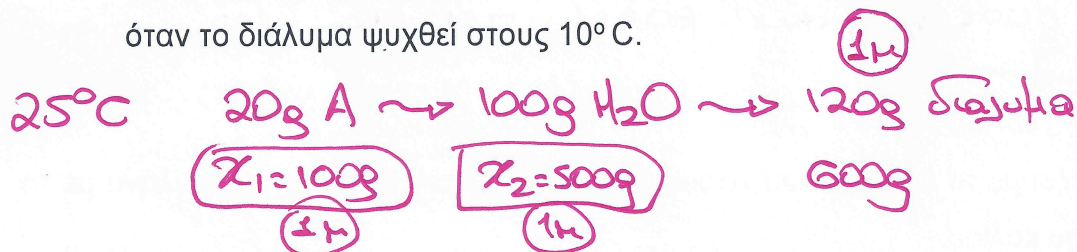 όταν το διάλυμα ψυχθεί στους 10º C.
1μ
25ºC 20g A ⇝ 100g H₂O ⇝ 120g διαλυμα
x₁=100g x₂=500g 600g
1μ 1μ